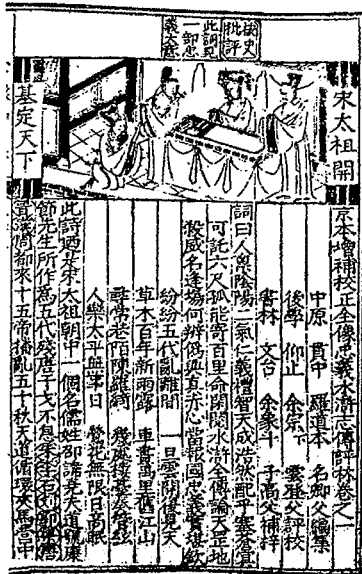 按史
批評
此詞見
一部忠
義大意
宋太祖開
基定天下
京本增補校正全像忠義水滸志傳評林卷之一
中原 貫中 羅道本 名卿父編集
後學 仰止 余宗下 雲登父評校
書林 文台 余象斗 子高父補梓
詞曰人稟陰陽二氣仁義禮智天成浩然配乎塞蒼冥
可託六尺孤能寄百里命閱閱水滸全傳論天罡地
煞威名逢場何辨偽與真赤心當報國忠義實堪欽
紛紛五代亂離間 一旦雲開復見天
草木百年新雨露 車書萬里舊江山
尋常巷陌陳羅綺 幾處樓臺奏管絃
人樂太平無事日 鶯花無限日高眠
此詩廼是宋太祖朝中一個名儒姓邵諱堯夫道號康
節先生所作為五代殘唐干戈不息朱李石劉郭梁唐
晉漢周都來十五帝播亂五十秋天道循環來馬營中